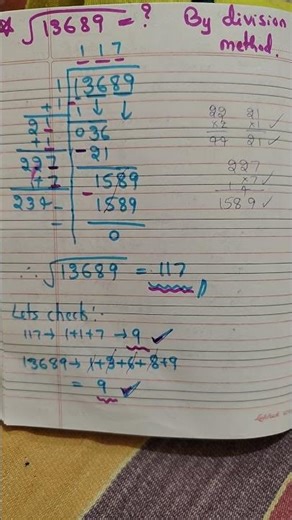 √13689 = ?
By division
method.
1 1 7
1 13689
+1 1 ↓ ↓
21 036
+1 - 21
227 1589
+7 - 1589
234 0
22 21
×2 ×1 ✓
44 21 ✓
227
×7 ✓
4
1589 ✓
∴ √13689 = 117
Lets check:-
117 → 1+1+7 → 9 ✓
13689 → 1+3+6+8+9
= 9 ✓